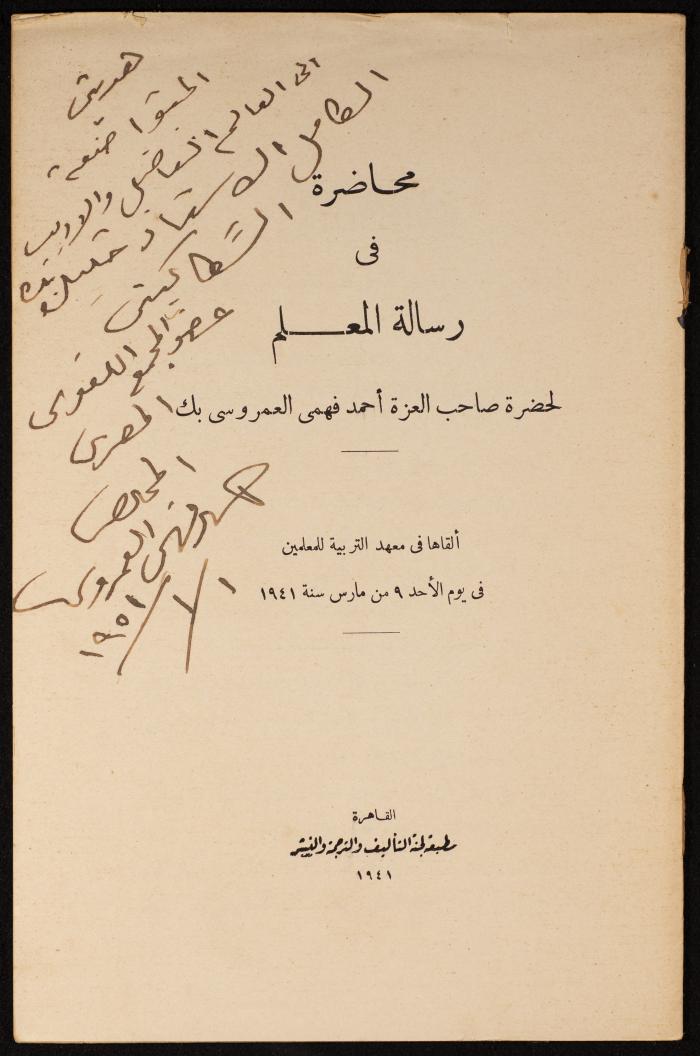 هديتى
المتواضعة
الى العالم الفاضل والاديب
الكامل الاستاذ خليل بك
السكاكينى
عضو المجمع اللغوى
المصرى
المخلص
احمد فهمى العمروسى
١/١/١٩٥١
محاضرة
فى
رسالة المعلم
لحضرة صاحب العزة أحمد فهمى العمروسى بك
ألقاها فى معهد التربية للمعلمين
فى يوم الأحد ٩ من مارس سنة ١٩٤١
القاهرة
مطبعة لجنة التأليف والترجمة والنشر
١٩٤١